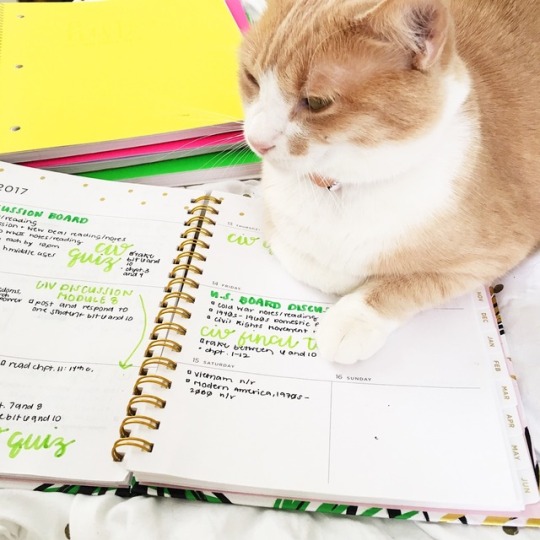 2017
CUSSION BOARD
/reading
ssion + New Deal reading/notes
WWII notes/reading
civ
quiz
take
bit u and
10
chpt. 8
and 9
CIV DISCUSSION
MODULE 8
post and respond to
one student bit u and 10
read chpt. 11: 17th c.
t. 7 and 8
bit u and 10
quiz
13 THURSDAY
civ
14 FRIDAY
U.S. BOARD DISCUS
Cold War notes/reading
1940s-1960s domestic P
Civil Rights movement
civ final
take between u and 10
chpt. 1-12
15 SATURDAY
Vietnam n/r
Modern America, 1970s-
2000 n/r
16 SUNDAY
NOV
DEC
JAN
FEB
MAR
APR
MAY
JUN